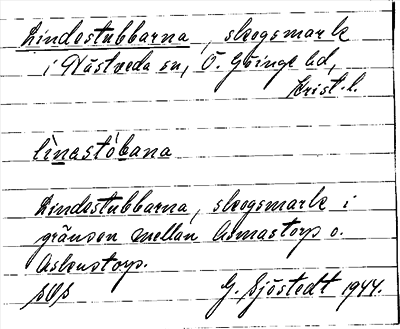 Lindestubbarna, skogsmark
i Nästveda sn, Ö. Göinge hd,
Krist. l.
lìnastóbana
Lindestubbarna, skogsmark i
gränsen mellan Usmastorp o.
Askustorp.
G. Sjöstedt 1944.